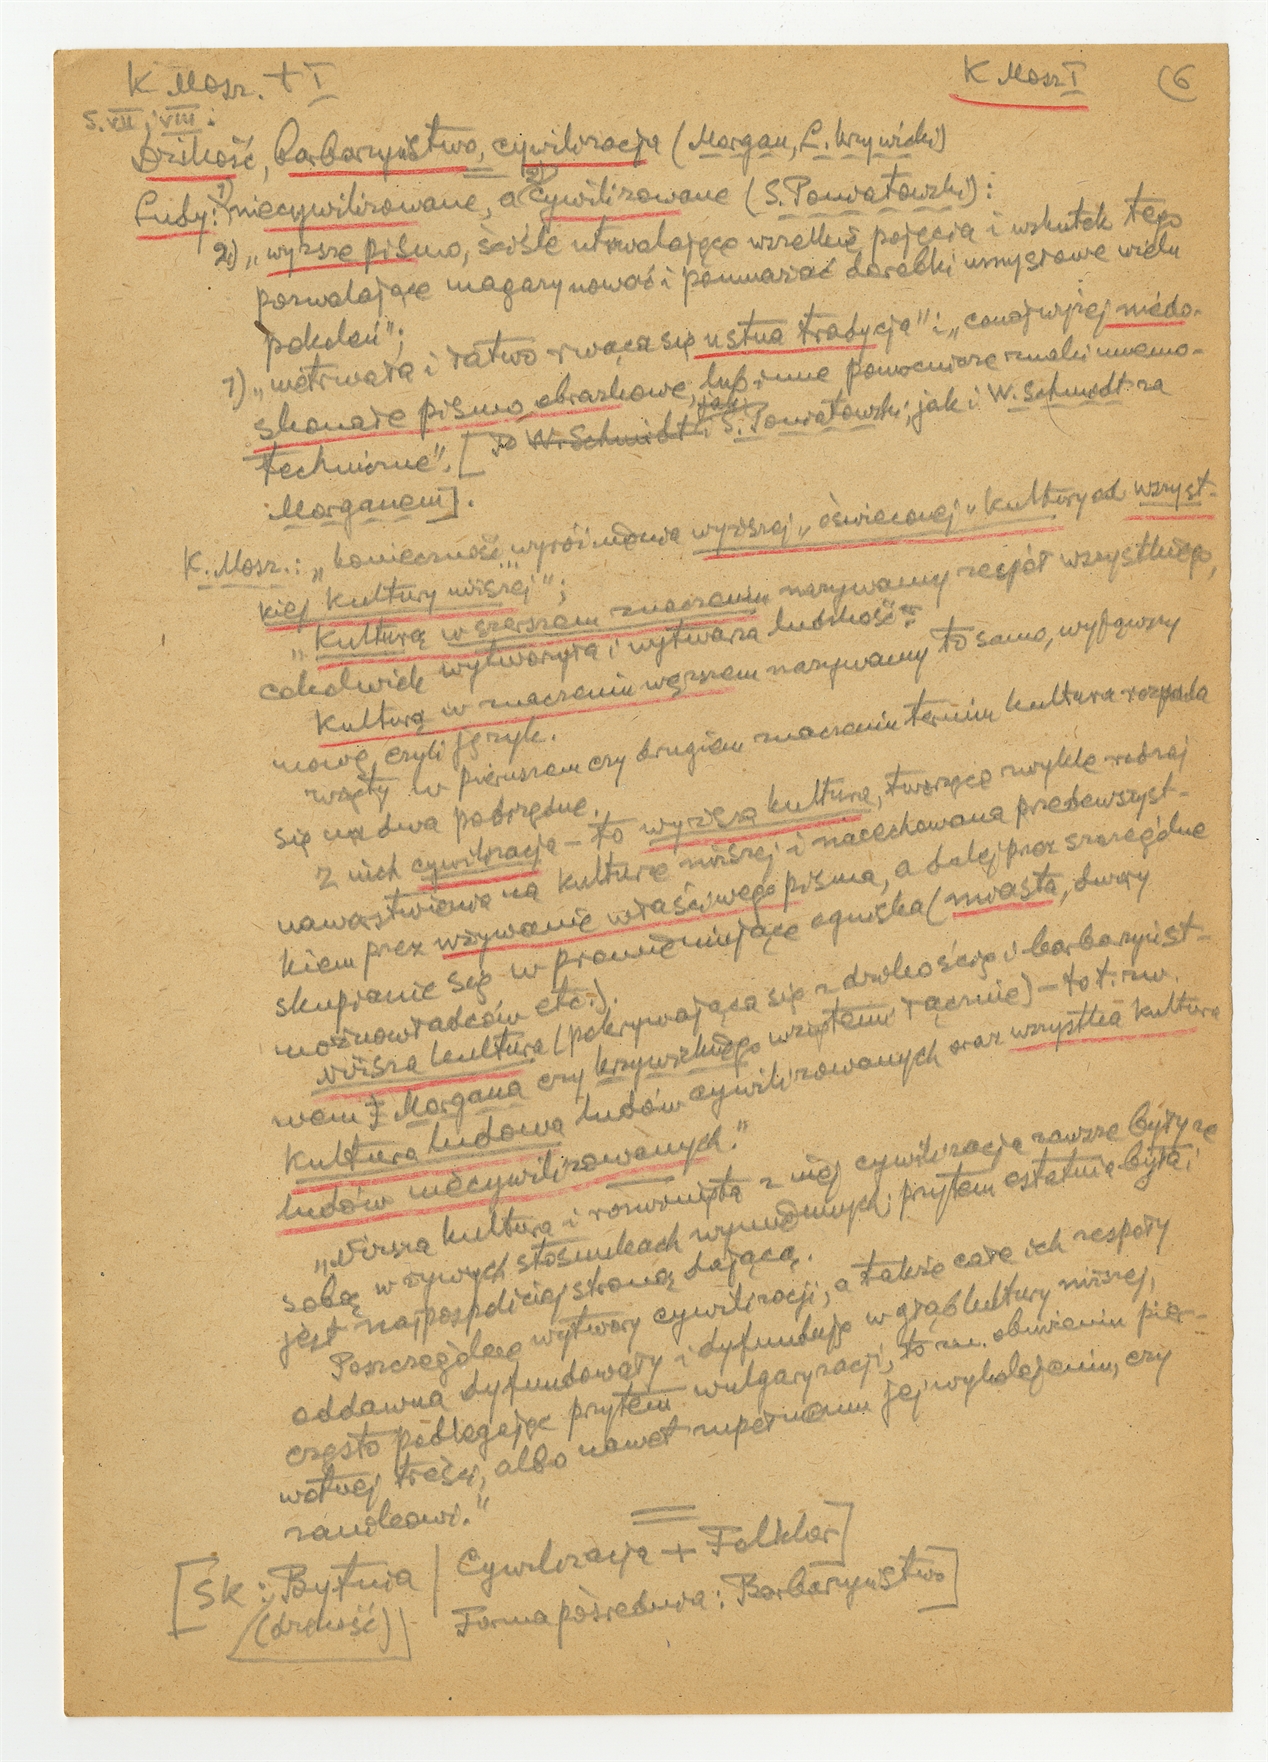 K Mosz. + I
K Mosz I
(6
S. VII i VIII:
Dzikość, barbarzyństwo, cywilizacja (Morgan, L. Krzywicki)
Ludy: 1) niecywilizowane, a 2) cywilizowane (S. Poniatowski):
2) „wyższe pismo, ściśle utrwalające wszelkie pojęcia i wskutek tego
pozwalające magazynować i pomnażać dorobki umysłowe wielu
pokoleń";
1) „nietrwała i łatwo rwąca się ustna tradycja" i „conajwyżej niedo-
skonałe pismo obrazkowe, lub inne pomocnicze znaki mnemo-
techniczne". [to W. Schmidt i jak S. Poniatowski, jak i W. Schmidt za
Morganem].
K. Mosz.: „konieczność wyróżnienia wyższej „oświeconej" kultury od wszyst-
kiej kultury niższej";
„Kulturą w szerszem znaczeniu nazywamy zespół wszystkiego,
cokolwiek wytworzyła i wytwarza ludzkość:
Kulturą w znaczeniu węższem nazywamy to samo, wyjąwszy
mowę, czyli język.
wzięty w pierwszem czy drugiem znaczeniu termin kultura rozpada
się na dwa podrzędne.
Z nich cywilizacja – to wyższa kultura, tworząca zwykle rodzaj
nawarstwienia na kulturze niższej i nacechowana przedewszyst-
kiem przez używanie właściwego pisma, a dalej przez szczególne
skupianie się w promieniujące ogniska (miasta, dwory
możnowładców etc.).
Niższa kultura (pokrywająca się z dzikością i barbarzyńst-
wem Morgana czy Krzywickiego wziętemi łącznie) – to t. zw.
kultura ludowa ludów cywilizowanych oraz wszystka kultura
ludów niecywilizowanych."
„Niższa kultura i rozwinięta z niej cywilizacja zawsze były ze
sobą w żywych stosunkach wymiennych; przytem ostatnia była i
jest najpospoliciej stroną dającą.
Poszczególne wytwory cywilizacji, a także całe ich zespoły
oddawna dyfundowały i dyfundują w głąb kultury niższej,
często podlegając przytem wulgaryzacji, to zn. obniżeniu pier-
wotnej treści, albo nawet zupełnemu jej wykolejeniu, czy
zanikowi."
[SK: Bytnia | Cywilizacja + Folklor]
(dzikość)] Forma pośrednia: Barbarzyństwo]